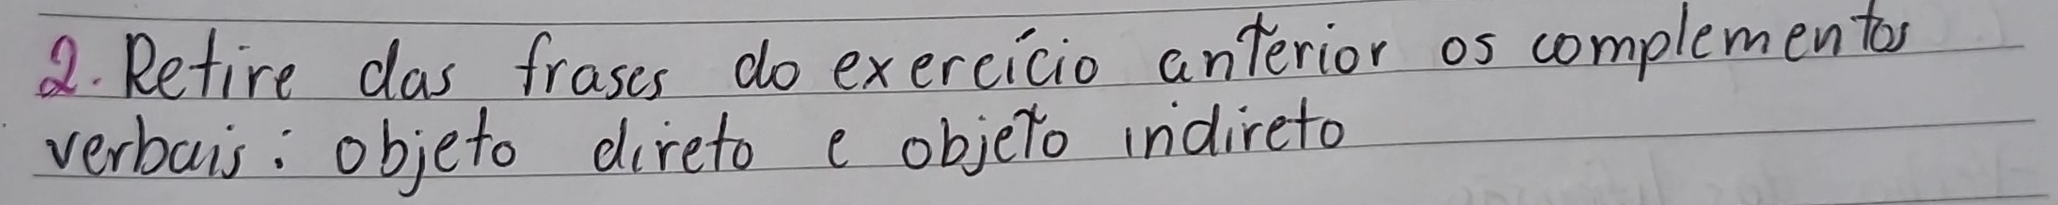 2. Retire das frases do exercício anterior os complementos
verbais: objeto direto e objeto indireto